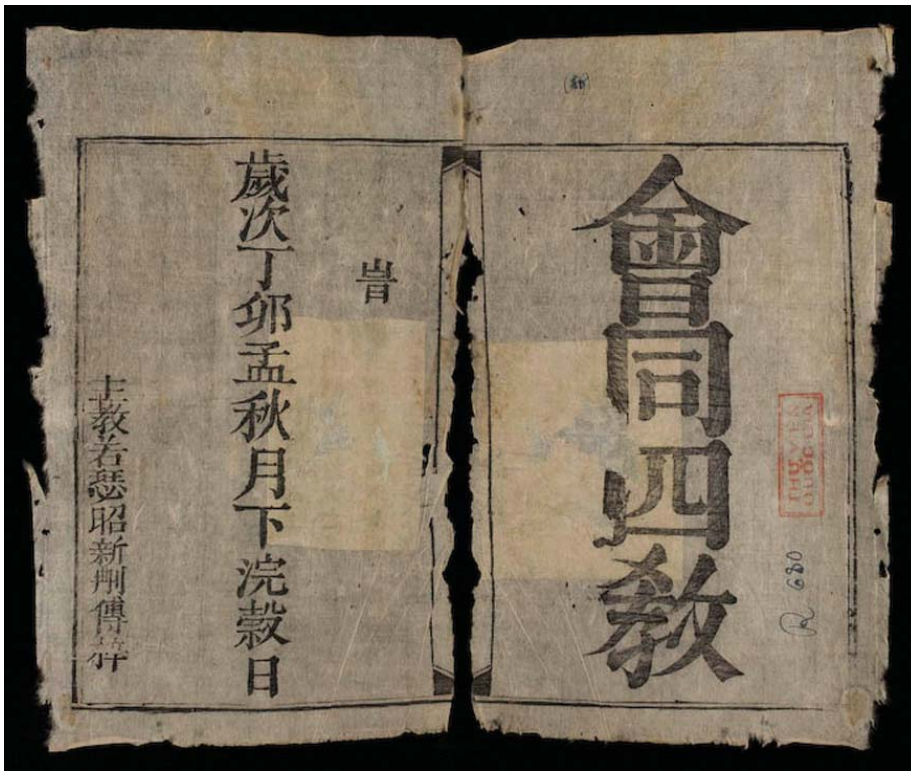 會同四教
R 680
旹
歲次丁卯孟秋月下浣穀日
主教若瑟昭新刪傳梓